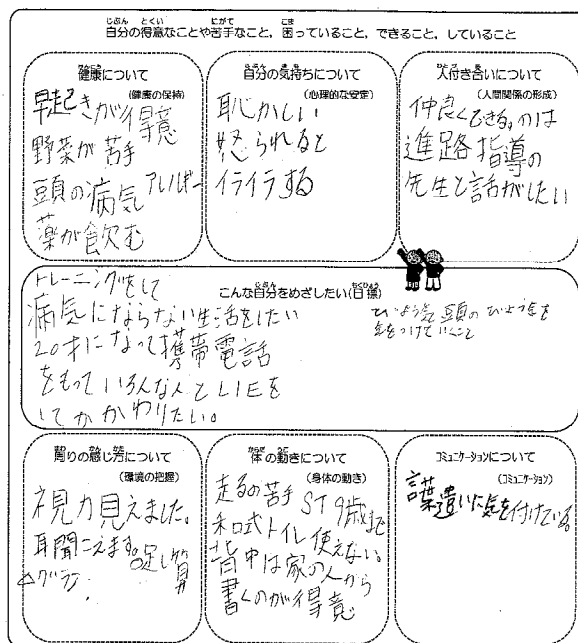 自分の得意なことや苦手なこと，困っていること，できること，していること
健康について
(健康の保持)
早起きが得意
野菜が苦手
頭の病気 アレルギー
薬が飲む
自分の気持ちについて
(心理的な安定)
恥かしい
怒られると
イライラする
人付き合いについて
(人間関係の形成)
仲良くできる。のは
進路指導の
先生と話がしたい
こんな自分をめざしたい(目標)
トレーニングをして
病気にならない生活をしたい
20才になって携帯電話
をもっていろんな人とLIEを
してかかわりたい。
びょう気 頭の びょう気を
気をつけていくこと
周りの感じ方について
(環境の把握)
視力見えました。
耳聞こえます。足し算
体の動きについて
(身体の動き)
走るの苦手 ST 9歳まで
和式トイレ使えない。
背中は家の人から
書くのが得意
コミュニケーションについて
(コミュニケーション)
言葉遣いに気を付けている。